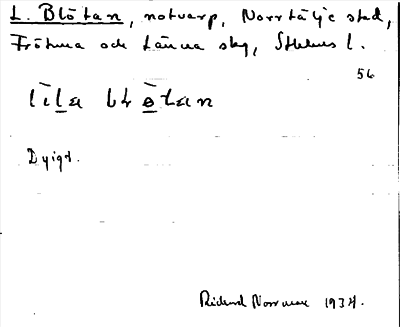 L. Blötan, notvarp, Norrtälje stad,
Frötuna och Länna skg, Sthlms l.
56
lila blötan
Dyigt.
Rickard Norrman 1934.